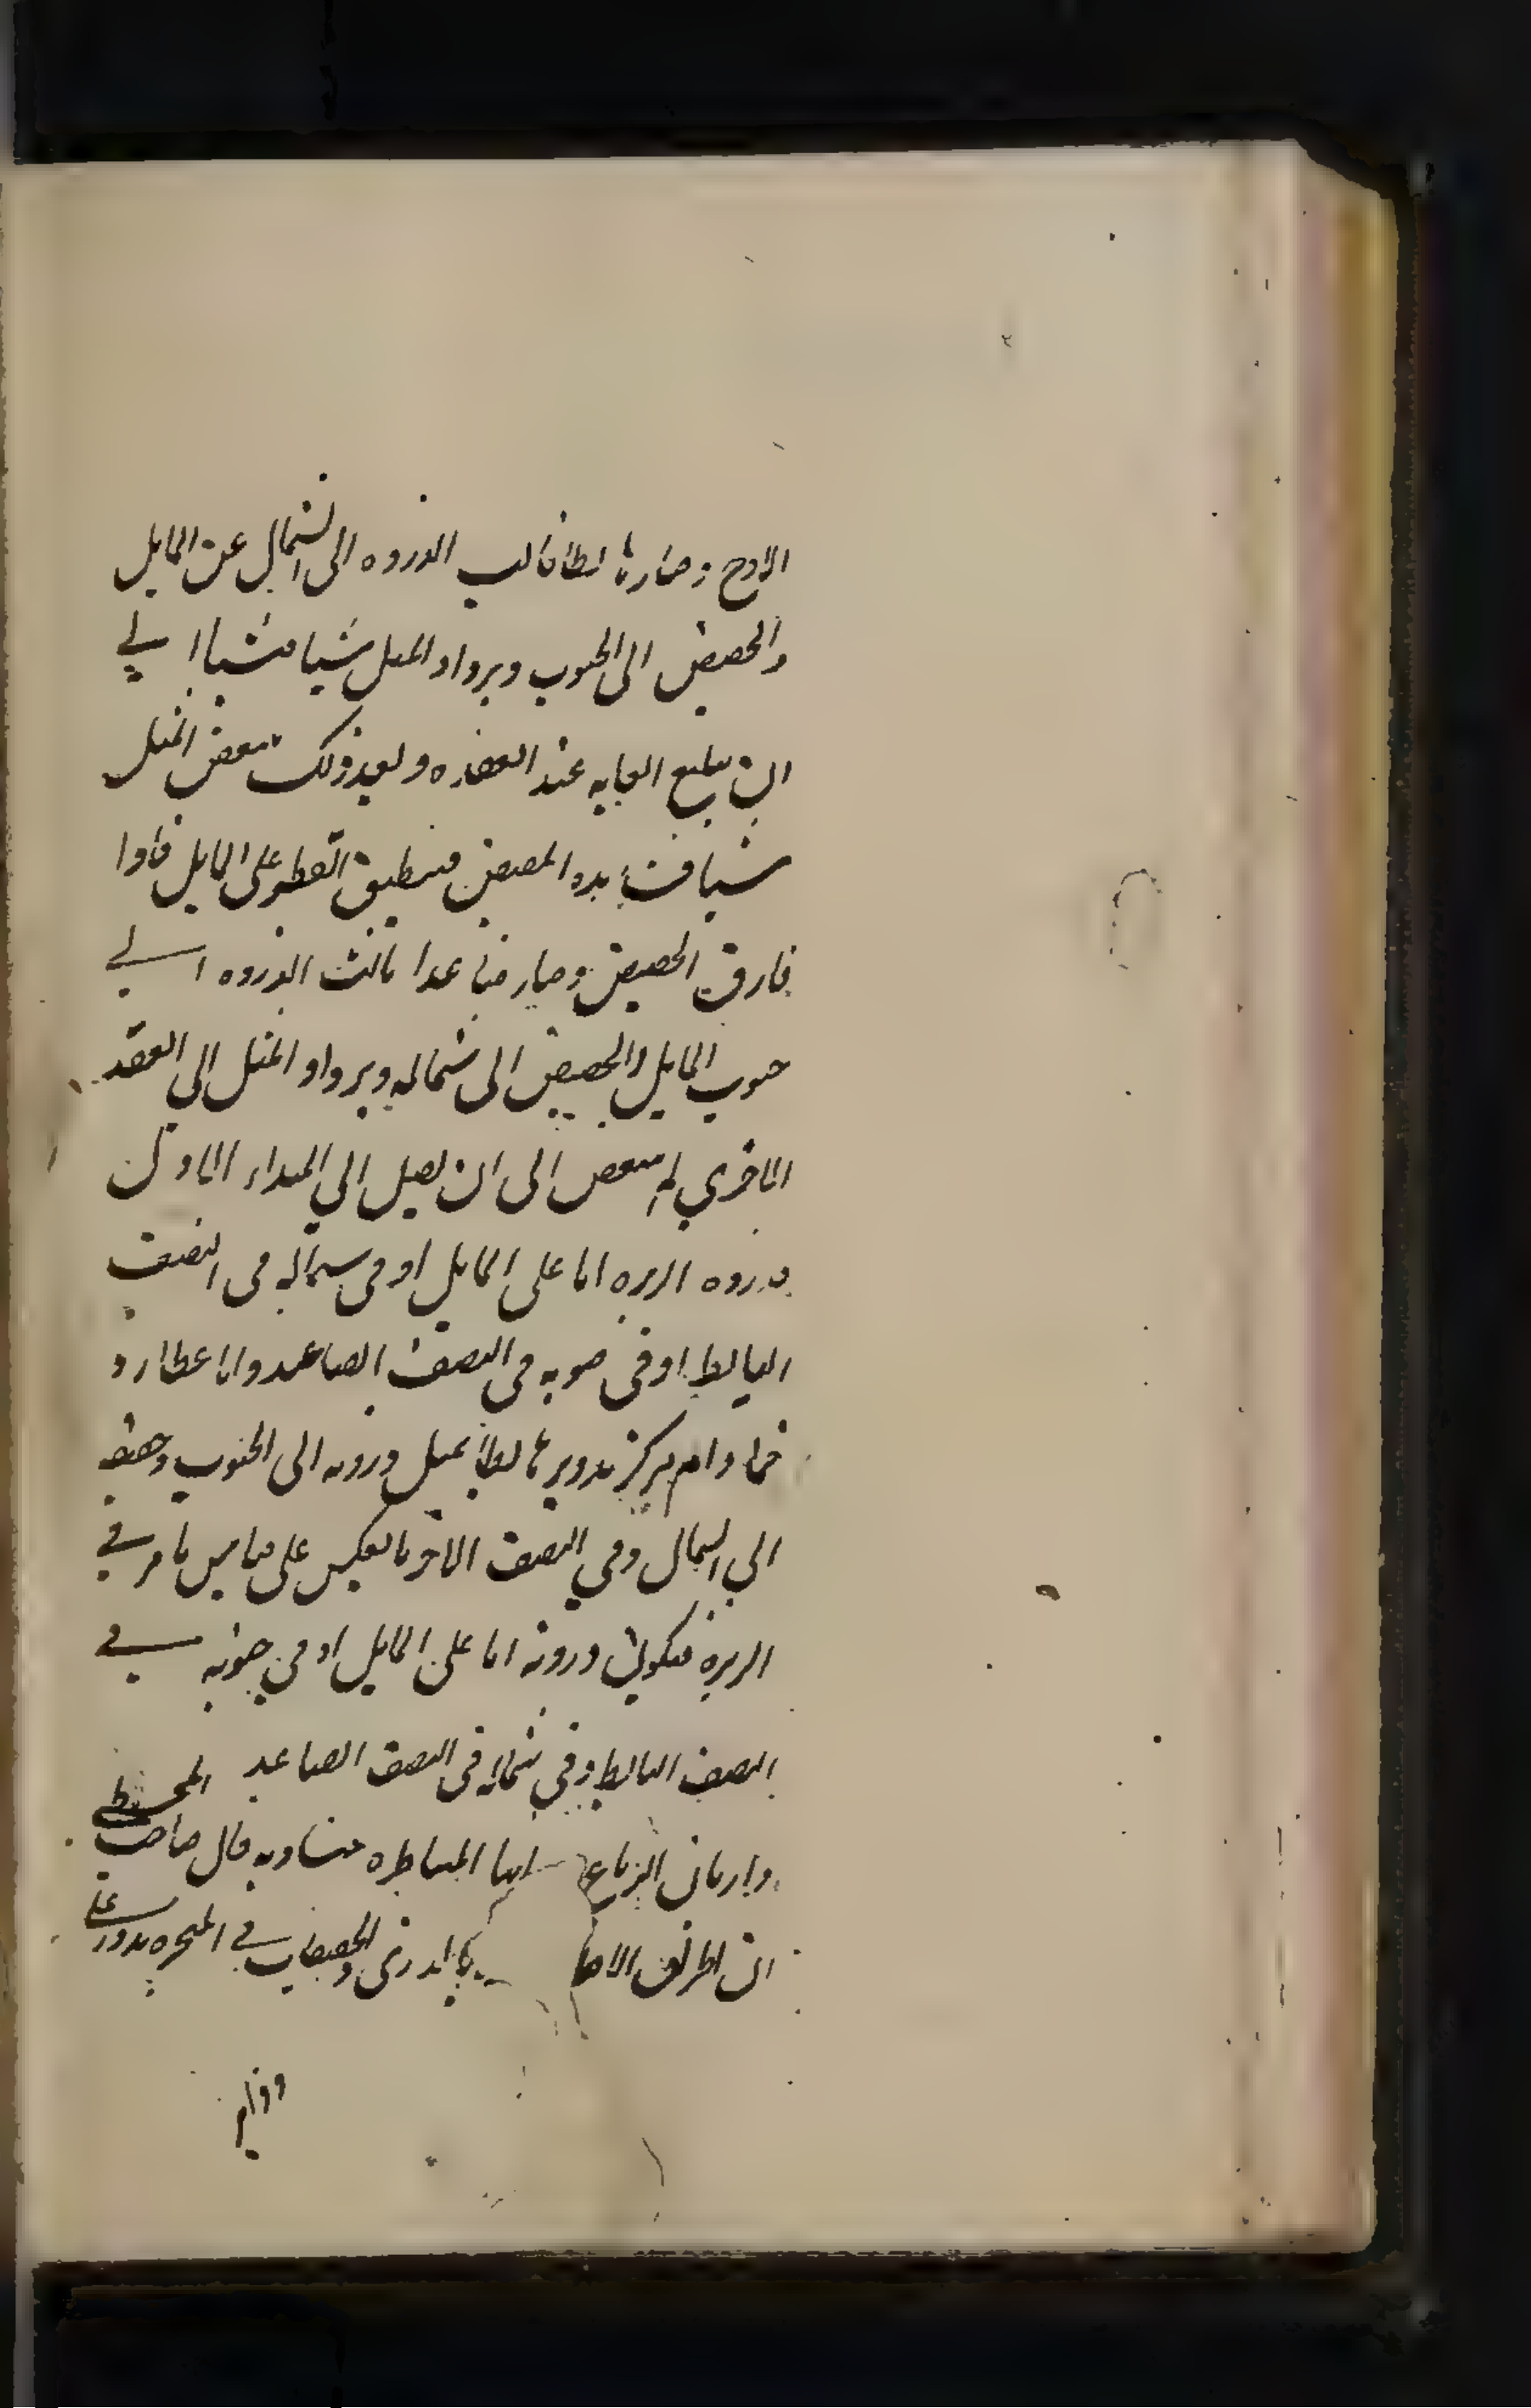 الاوج وصار هابطا مالت الذروه الى الشمال عن المايل
والحضيض الى الجنوب ويزداد الميل شيا فشيا الى
ان يبلغ الغايه عند العقده وبعد ذلك ينقص الميل
شيا فشيا الحضيض فينطبق القطر على المايل فاذا
فارق الحضيض وصار صاعدا مالت الذروه الى
جنوب المايل والحضيض الى شماله ويزداد الميل الى العقد
الاخري ثم ينقص الى ان يصل الي المبداء الاول
فذروه الزهره اما على المايل او في شماله في النصف
الهابط او في جنوبه في النصف الصاعد واما عطارد
فما دام مركز تدويره هابطا يميل ذروته الى الجنوب وحضيضه
الي الشمال وفي النصف الاخر بالعكس على قياس ما مر في
الزهره فيكون ذروته اما على المايل او في جنوبه في
النصف الهابط وفي شماله في النصف الصاعد
وازمان الارباع المتناظره متساويه قال صاحب المجسطي
ان اطراف الاقطا الذري والحضيضات في المتحيره يدور على
دوائر